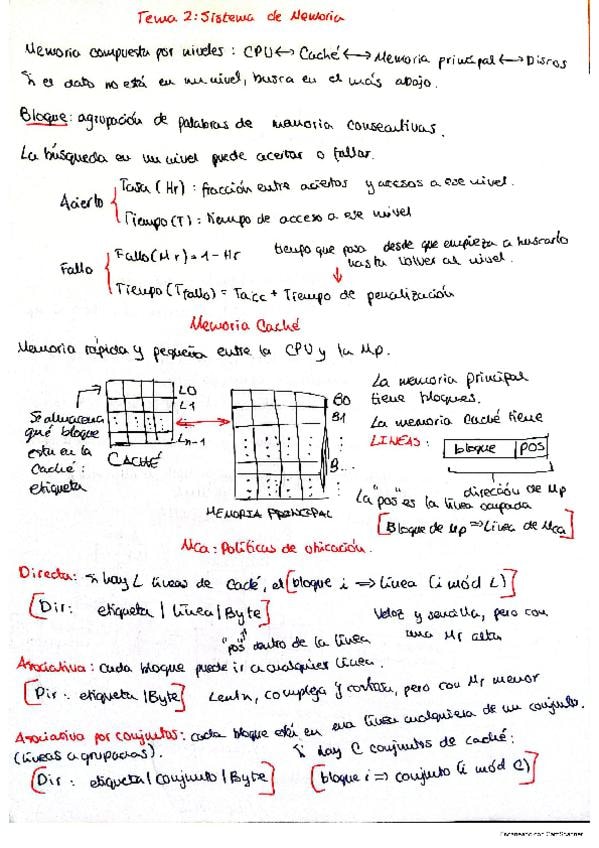 Tema 2: Sistema de Memoria
Memoria compuesta por niveles: CPU ↔ Caché ↔ Memoria principal ↔ Discos
Si el dato no está en un nivel, busca en el más abajo.
Bloque: agrupación de palabras de memoria consecutivas.
La búsqueda en un nivel puede acertar o fallar.
Acierto
Tasa (Hr): fracción entre aciertos y accesos a ese nivel.
Tiempo (T): tiempo de acceso a ese nivel
Fallo
Fallo (Mr) = 1 - Hr
tiempo que pasa desde que empieza a buscarlo
hasta volver al nivel.
Tiempo (Tfallo) = Tacc + Tiempo de penalización
Memoria Caché
Memoria rápida y pequeña entre la CPU y la Mp.
Se almacena
qué bloque
esta en la
caché:
etiqueta
L0
L1
Ln-1
CACHÉ
B0
B1
B...
MEMORIA PRINCIPAL
La memoria principal
tiene bloques.
La memoria caché tiene
LINEAS: bloque | POS
dirección de Mp
La "pos" es la línea ocupada
[Bloque de Mp ⇒ Línea de Mca]
Mca: Políticas de ubicación.
Directa: Si hay L líneas de caché, el [bloque i ⇒ línea (i mód L)]
[Dir: etiqueta | línea | Byte]
"pos" dentro de la línea
Veloz y sencilla, pero con
una Mr alta
Asociativa: cada bloque puede ir a cualquier línea.
[Dir: etiqueta | Byte] Lenta, compleja y costosa, pero con Mr menor
Asociativa por conjuntos: cada bloque está en una línea cualquiera de un conjunto.
(líneas agrupadas). Si hay C conjuntos de caché:
[Dir: etiqueta | conjunto | Byte] [bloque i ⇒ conjunto (i mód C)]
Escaneado con CamScanner